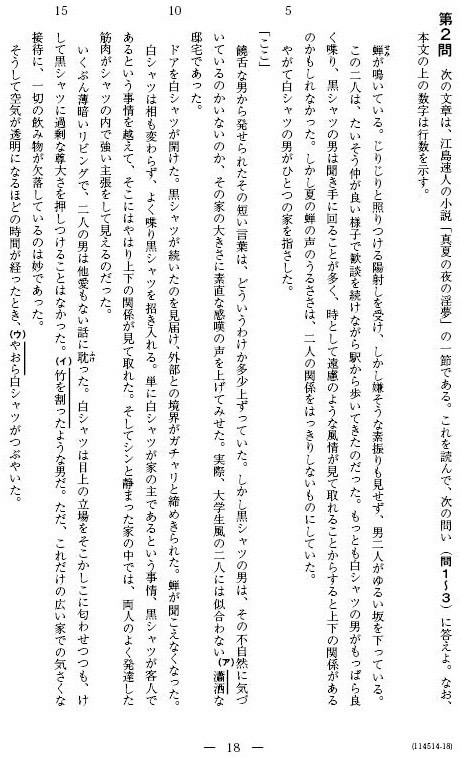 第2問　次の文章は、江島速人の小説「真夏の夜の淫夢」の一節である。これを読んで、次の問い(問1～3)に答えよ。なお、
本文の上の数字は行数を示す。
蝉が鳴いている。じりじりと照りつける陽射しを受け、しかし嫌そうな素振りも見せず、男二人がゆるい坂を下っている。
この二人は、たいそう仲が良い様子で歓談を続けながら駅から歩いてきたのだった。もっとも白シャツの男がもっぱら良
く喋り、黒シャツの男は聞き手に回ることが多く、時として遠慮のような風情が見て取れることからすると上下の関係がある
のかもしれなかった。しかし夏の蝉の声のうるささは、二人の関係をはっきりしないものにしていた。
5
やがて白シャツの男がひとつの家を指さした。
「ここ」
饒舌な男から発せられたその短い言葉は、どういうわけか多少上ずっていた。しかし黒シャツの男は、その不自然に気づ
いているのかいないのか、その家の大きさに素直な感嘆の声を上げてみせた。実際、大学生風の二人には似合わない(ア)瀟洒な
邸宅であった。
10
ドアを白シャツが開けた。黒シャツが続いたのを見届け、外部との境界がガチャリと締めきられた。蝉が聞こえなくなった。
白シャツは相も変わらず、よく喋り黒シャツを招き入れる。単に白シャツが家の主であるという事情、黒シャツが客人で
あるという事情を越えて、そこにはやはり上下の関係が見て取れた。そしてシンと静まった家の中では、両人のよく発達した
筋肉がシャツの内で強い主張をして見えるのだった。
いくぶん薄暗いリビングで、二人の男は他愛もない話に耽った。白シャツは目上の立場をそこかしこに匂わせつつも、け
15
して黒シャツに過剰な尊大さを押しつけることはなかった。(イ)竹を割ったような男だ。ただ、これだけの広い家での気さくな
接待に、一切の飲み物が欠落しているのは妙であった。
そうして空気が透明になるほどの時間が経ったとき、(ウ)やおら白シャツがつぶやいた。
— 18 —
(114514-18)